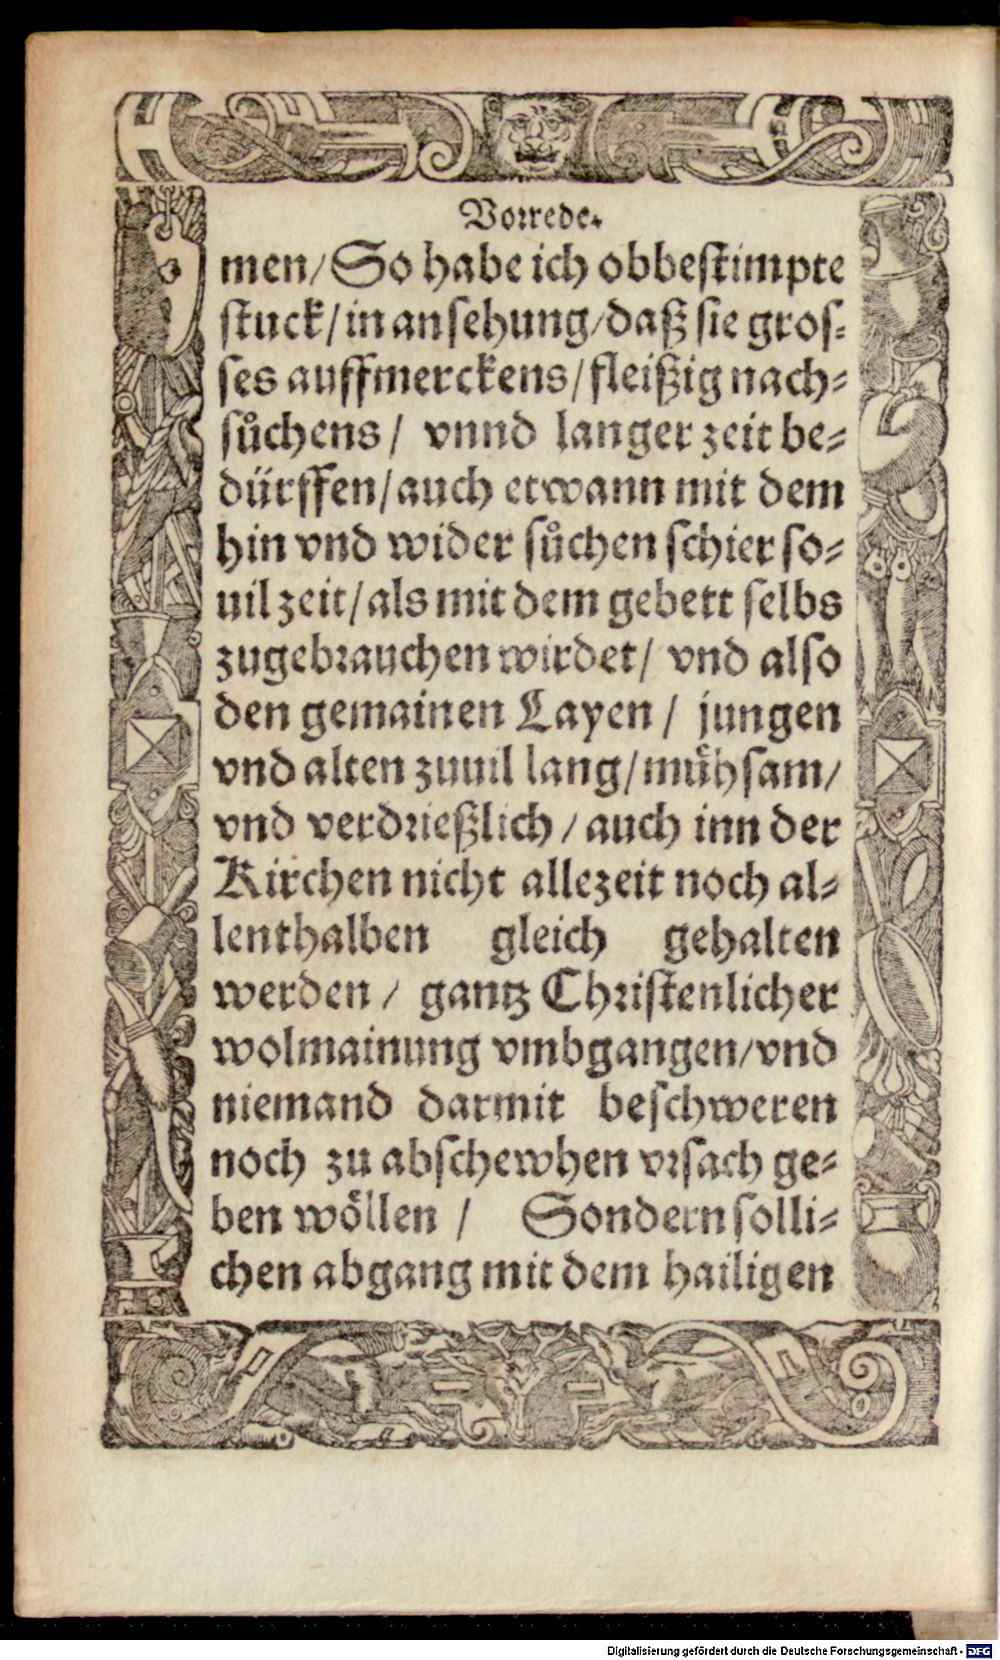 Vorrede.
men/ So habe ich obbestimpte
stuck/ in ansehung/ daß sie gros-
ses auffmerckens/ fleißig nach-
sůchens/ vnnd langer zeit be-
dürffen/ auch etwann mit dem
hin vnd wider sůchen schier so-
uil zeit/ als mit dem gebett selbs
zugebrauchen wirdet/ vnd also
den gemainen Layen/ jungen
vnd alten zuuil lang/ mühsam/
vnd verdrießlich/ auch inn der
Kirchen nicht allezeit noch al-
lenthalben gleich gehalten
werden/ gantz Christenlicher
wolmainung vmbgangen/ vnd
niemand darmit beschweren
noch zu abschewhen vrsach ge-
ben wöllen/ Sondern solli-
chen abgang mit dem hailigen
Digitalisierung gefördert durch die Deutsche Forschungsgemeinschaft - DFG